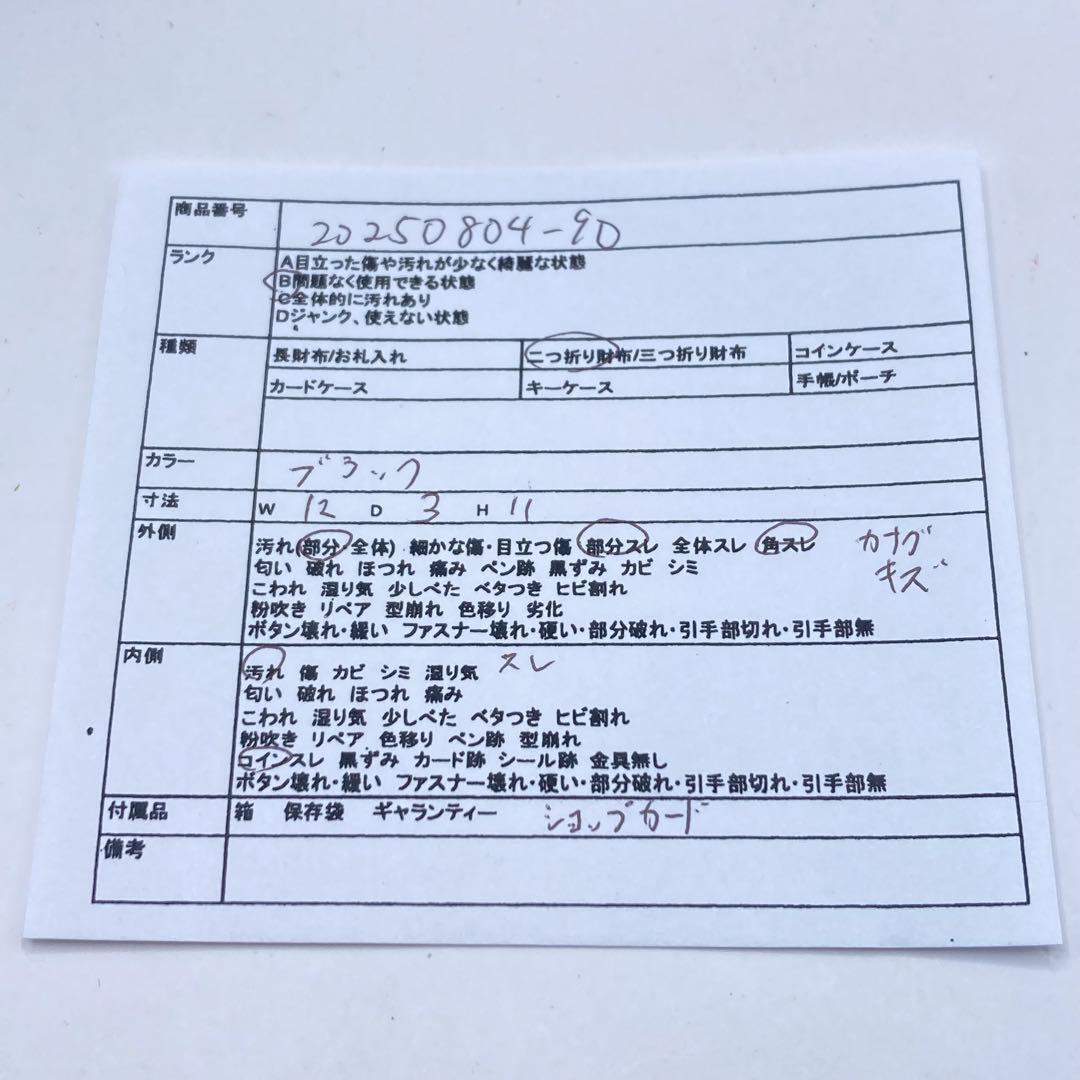 商品番号 20250804-90
ランク A目立った傷や汚れが少なく綺麗な状態
B問題なく使用できる状態
C全体的に汚れあり
Dジャンク、使えない状態
種類 長財布/お札入れ 二つ折り財布/三つ折り財布 コインケース
カードケース キーケース 手帳/ポーチ
カラー ブラック
寸法 W 12 D 3 H 11
外側 汚れ(部分・全体) 細かな傷・目立つ傷 部分スレ 全体スレ 角スレ カナグ
匂い 破れ ほつれ 痛み ペン跡 黒ずみ カビ シミ キズ
こわれ 湿り気 少しべた ベタつき ヒビ割れ
粉吹き リペア 型崩れ 色移り 劣化
ボタン壊れ・緩い ファスナー壊れ・硬い・部分破れ・引手部切れ・引手部無
内側 汚れ 傷 カビ シミ 湿り気 スレ
匂い 破れ ほつれ 痛み
こわれ 湿り気 少しべた ベタつき ヒビ割れ
粉吹き リペア 色移り ペン跡 型崩れ
コインスレ 黒ずみ カード跡 シール跡 金具無し
ボタン壊れ・緩い ファスナー壊れ・硬い・部分破れ・引手部切れ・引手部無
付属品 箱 保存袋 ギャランティー ショップカード
備考